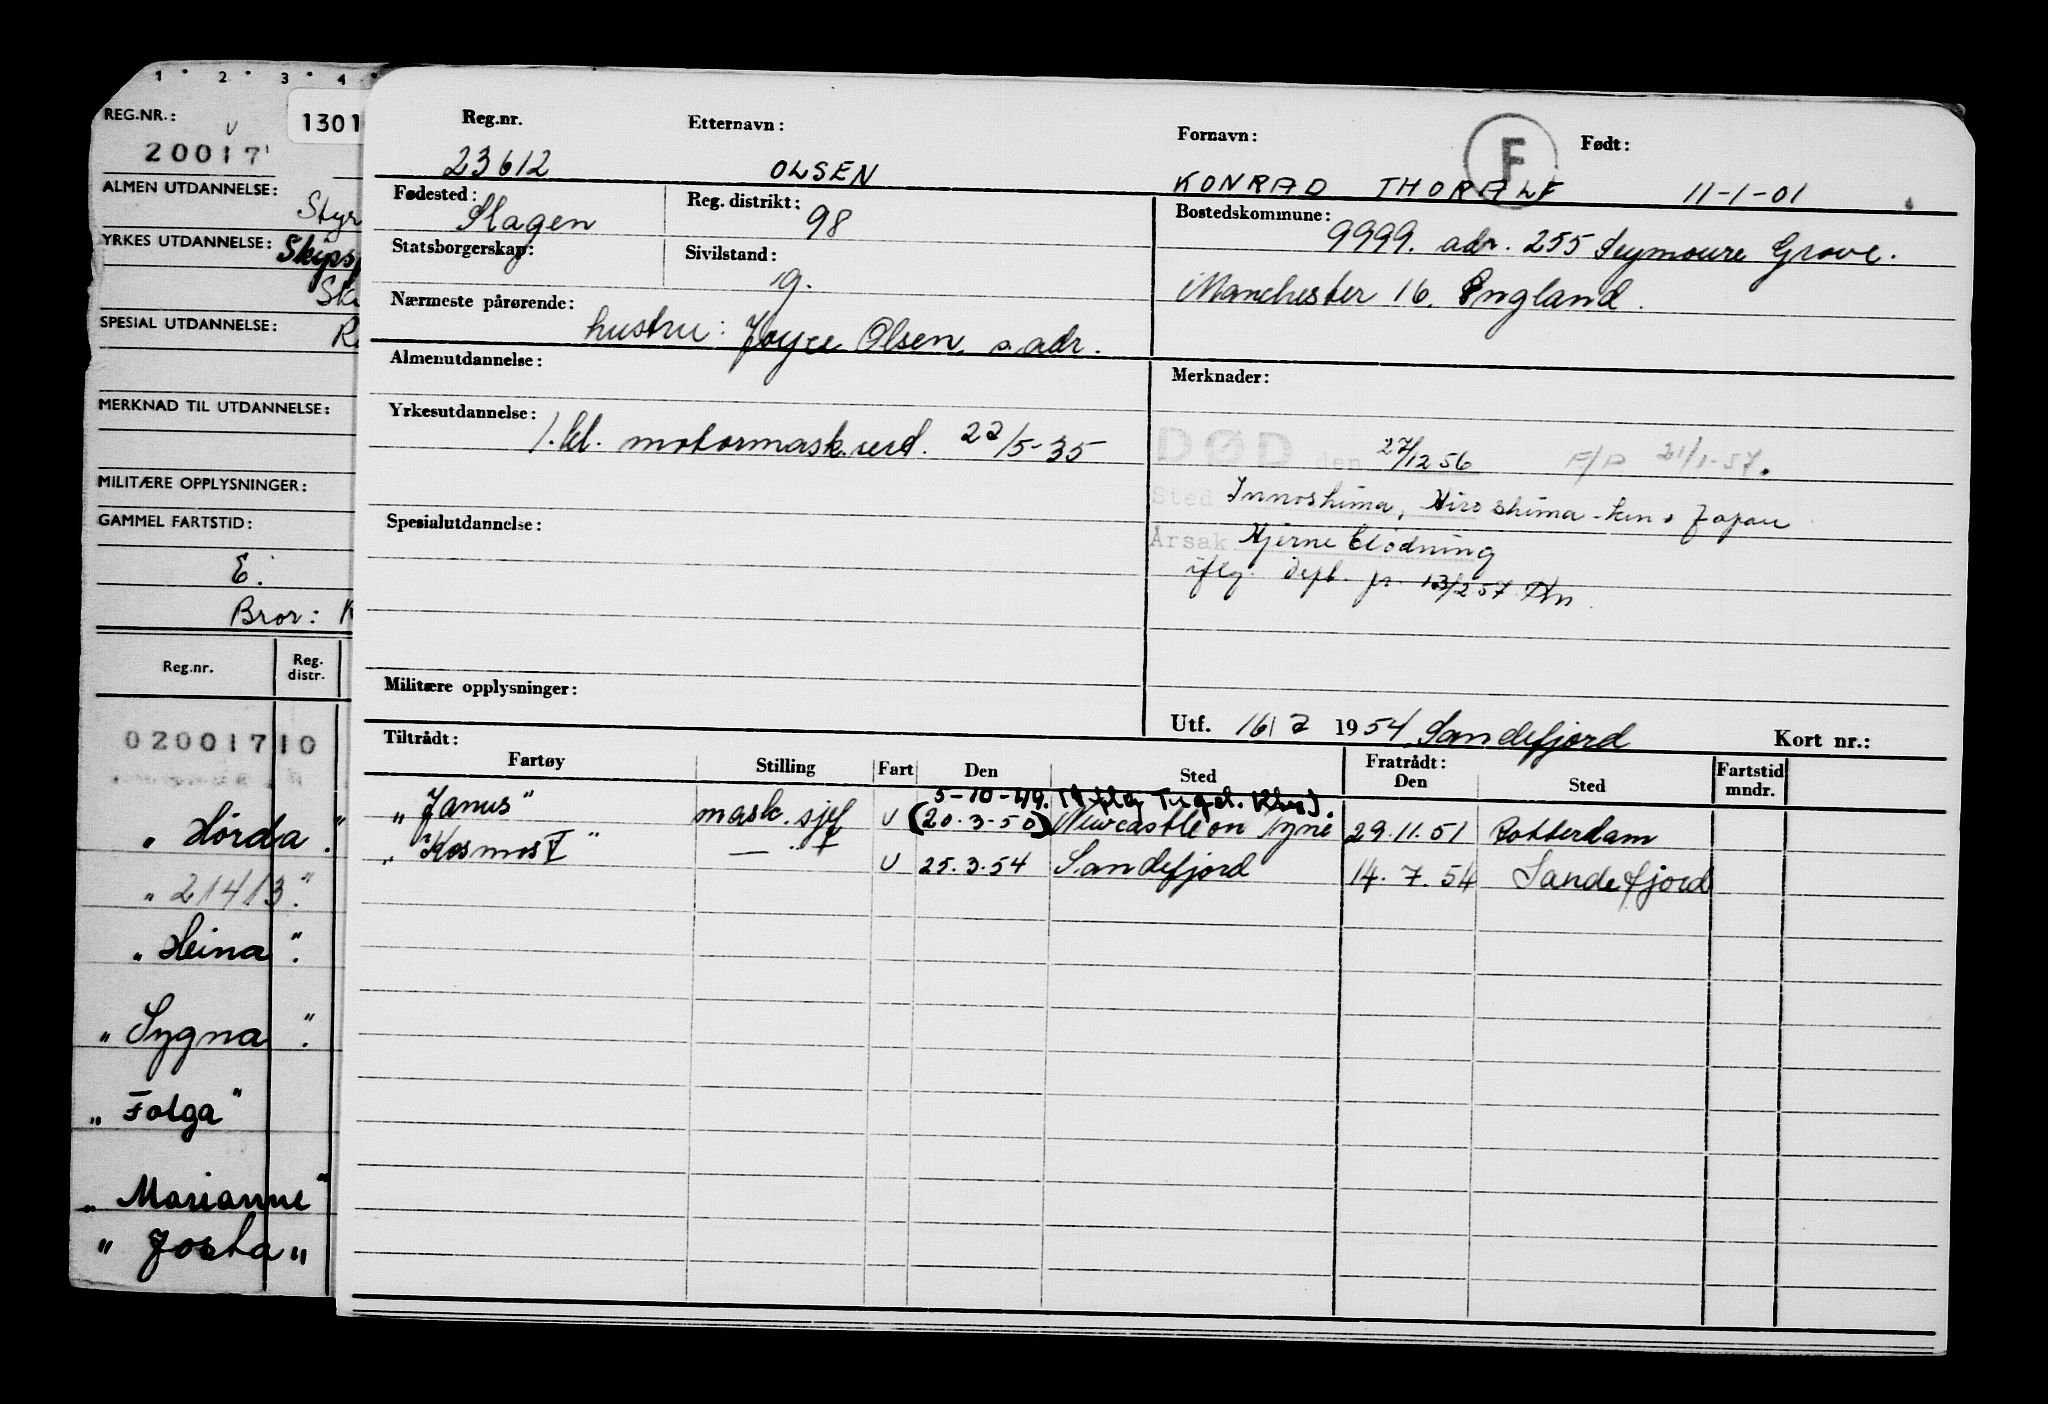 1 2 3 4
REG.NR.:
1301
20017
ALMEN UTDANNELSE:
Styr
YRKES UTDANNELSE: Skips
SPESIAL UTDANNELSE:
MERKNAD TIL UTDANNELSE:
MILITÆRE OPPLYSNINGER:
GAMMEL FARTSTID:
E.
Bror:
Reg.nr. Reg. distr.
02001710
„ Hörda."
„ 21413."
„ Heina".
„ Sygna".
„ Folga"
„ Marianne"
„ Josta"
Reg.nr. Etternavn: Fornavn: F Født:
23612 OLSEN KONRAD THORALF 11-1-01
Fødested: Slagen Reg. distrikt: 98 Bostedskommune: 9999. adr. 255 Seymoure Grove.
Statsborgerskap: Sivilstand: g. Manchester 16. England.
Nærmeste pårørende: hustru: Joyce Olsen, s. adr.
Almenutdannelse: Merknader:
Yrkesutdannelse: 1. kl. motormask.serd. 22/5-35
DØD den 27/12 56 F/D 21/1-57.
Sted Innoshima, Hiroshima-ken, Japan
Årsak Hjerneblødning
iflg. dspl. pr. 13/2 57
Spesialutdannelse:
Militære opplysninger:
Utf. 16/2 1954 Sandefjord Kort nr.:
Tiltrådt: Fratrådt:
Fartøy Stilling Fart Den Sted Den Sted Fartstid mndr.
5-10-49.
„Janus" mask.sjef U (20.3-50) Newcastle on Tyne 29.11.51 Rotterdam
„Kosmos V" — U 25.3.54 Sandefjord 14.7.54 Sandefjord